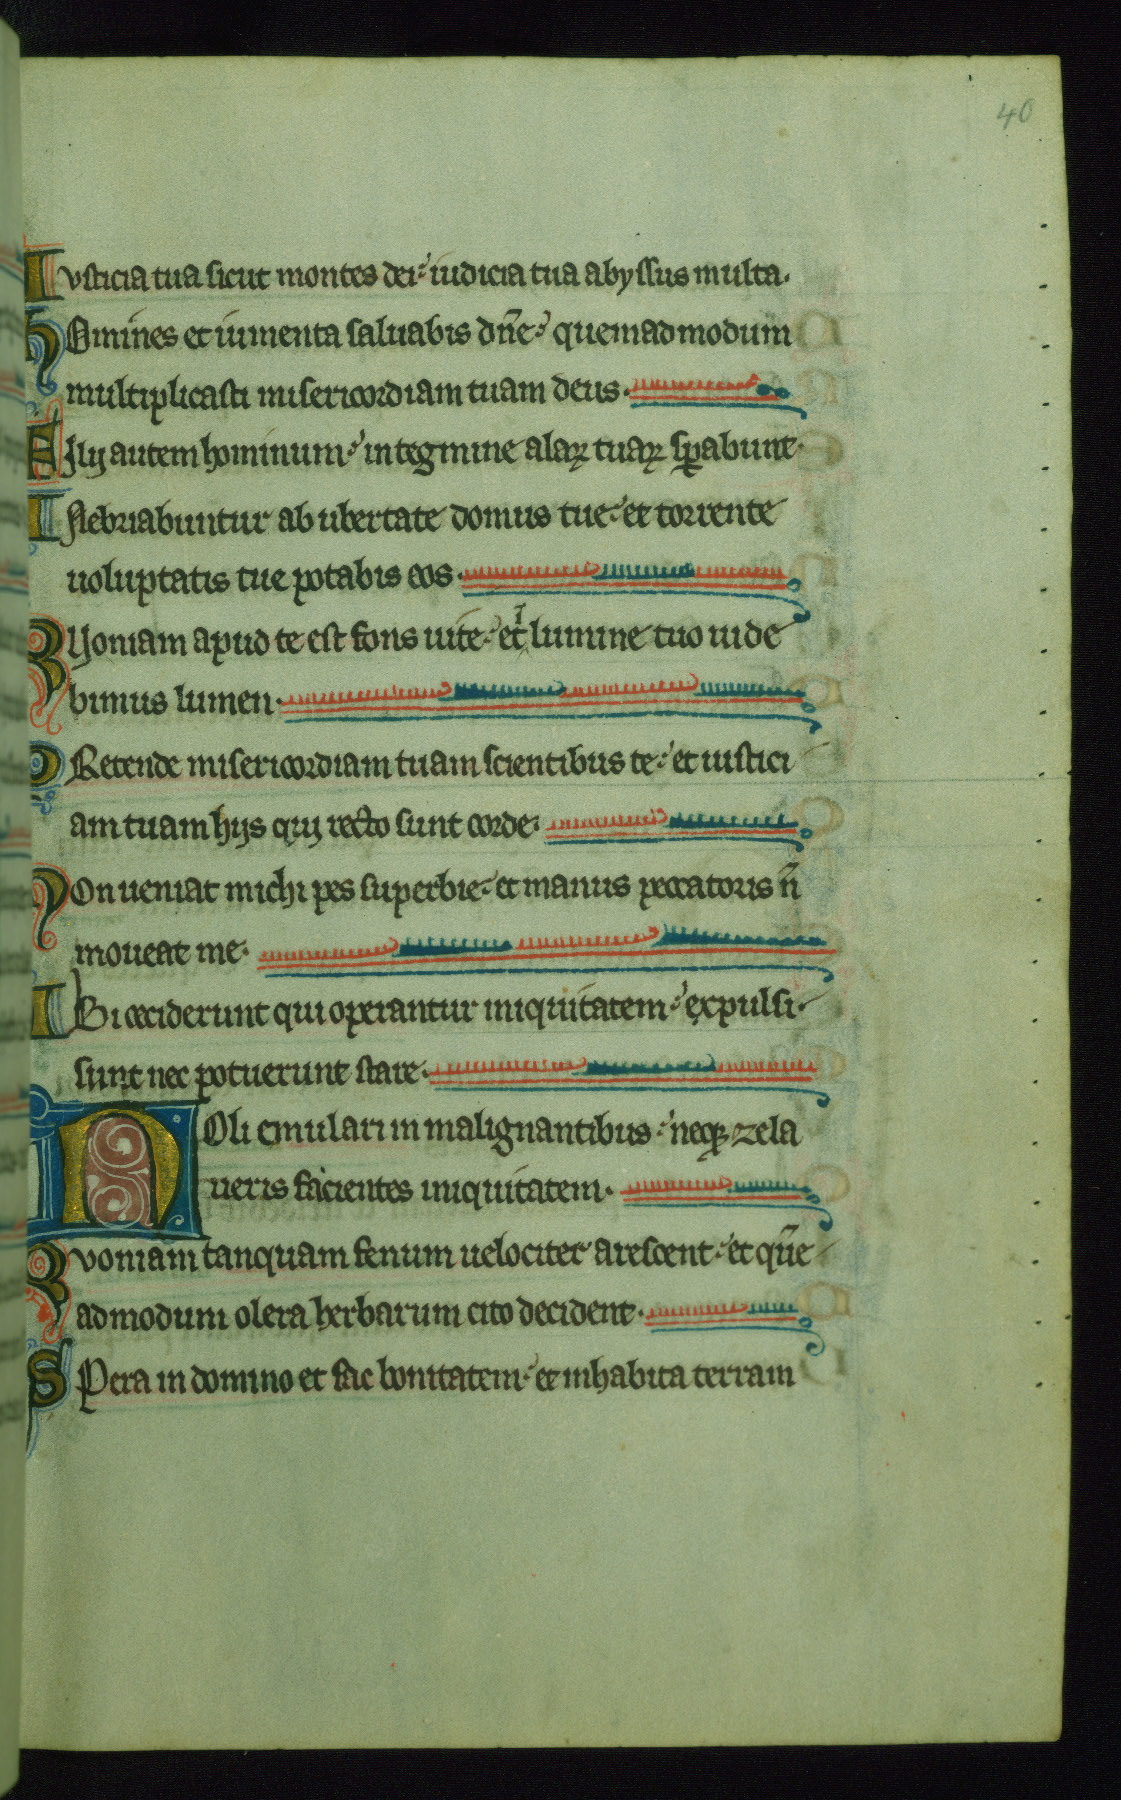 40
Iusticia tua sicut montes dei: iudicia tua abyssus multa.
HOmines et iumenta saluabis dñe: quemadmodum
multiplicasti misericordiam tuam deus.
FIlij autem hominum: in tegmine alaꝝ tuaꝝ sꝑabunt.
INebriabuntur ab ubertate domus tue: et torrente
uoluptatis tue potabis eos.
QUoniam apud te est fons uite: et ĩ lumine tuo uide
bimus lumen.
PRetende misericordiam tuam scientibus te: et iustici
am tuam hijs qui recto sunt corde.
NOn ueniat michi pes superbie: et manus peccatoris ñ
moueat me.
IBi ceciderunt qui operantur iniquitatem: expulsi.
sunt nec potuerunt stare.
NOli emulari in malignantibus: neqꝫ zela
ueris facientes iniquitatem.
Quoniam tanquam fenum uelociter arescent: et qũe
admodum olera herbarum cito decident.
SPera in domino et fac bonitatem: et inhabita terram